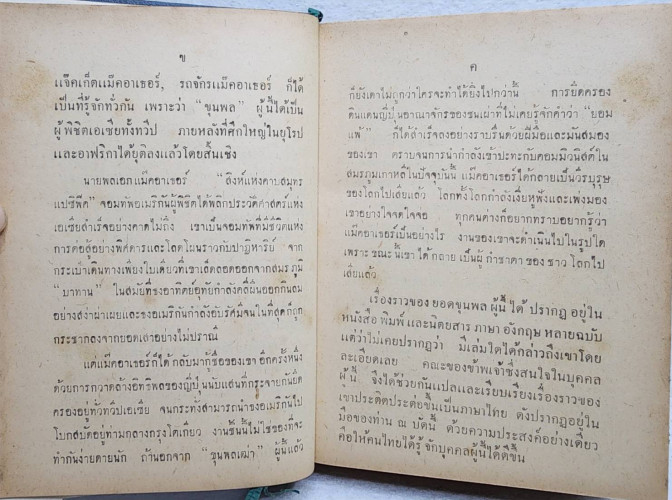 ข
แจ๊คเก็ตแม๊คอาเธอร์, รถจักรแม๊คอาเธอร์ ก็ได้
เป็นที่รู้จักทั่วกัน เพราะว่า “ขุนพล” ผู้นี้ได้เป็น
ผู้พิชิตเอเซียทั้งทวีป ภายหลังที่ศึกใหญ่ในยุโรป
และอาฟริกาได้ยุติลงแล้วโดยสิ้นเชิง
นายพลเอกแม๊คอาเธอร์ “สิงห์แห่งคาบสมุทร
แปซิฟิค” จอมทัพอเมริกันผู้พิชิตได้พลิกประวัติศาสตร์แห่ง
เอเซียสำเร็จอย่างคาดไม่ถึง เขาเป็นจอมทัพที่มีชีวิตแห่ง
การต่อสู้อย่างพิศดารและโลดโผนราวกับปาฏิหาริย์ จาก
กระเป๋าเดินทางเพียงใบเดียวที่เขาเล็ดลอดออกจากสมรภูมิ
“บาทาน” ในสมัยที่ธงอาทิตย์อุทัยกำลังคลี่ผืนออกกินลม
อย่างสง่าผ่าเผยและธงอเมริกันกำลังอับรัศมีจนในที่สุดก็ถูก
กระชากลงจากยอดเสาอย่างไม่ปราณี
แต่แม๊คอาเธอร์ก็ได้ กลับมากู้ชื่อของเขา อีกครั้งหนึ่ง
ด้วยการกวาดล้างอิทธิพลของญี่ปุ่นนับแสนที่กระจายกันยึด
ครองอยู่ทั่วทวีปเอเซีย จนกระทั่งสามารถนำธงอเมริกันไป
โบกสบัดอยู่ท่ามกลางกรุงโตเกียว งานชิ้นนี้ไม่ใช่ของที่จะ
ทำกันง่ายดายนัก ถ้านอกจาก “ขุนพลเฒ่า” ผู้นี้แล้ว
ค
ก็ยังเดาไม่ถูกว่าใครจะทำได้ยิ่งไปกว่านี้ การยึดครอง
ดินแดนญี่ปุ่นอาณาจักรของชนเผ่าที่ไม่เคยรู้จักคำว่า “ยอม
แพ้” ก็ได้สำเร็จลงอย่างราบรื่นด้วยฝีมือและมันสมอง
ของเขา ตราบจนการนำกำลังเข้าปะทะกับคอมมิวนิสต์ใน
สมรภูมิเกาหลีในปัจจุบันนี้ แม๊คอาเธอร์ได้กลายเป็นวีรบุรุษ
ของโลกไปเสียแล้ว โลกทั้งโลกกำลังเงี่ยหูฟังและเพ่งมอง
เขาอย่างใจจดใจจ่อ ทุกคนต่างก็อยากทราบอยากรู้ว่า
แม๊คอาเธอร์เป็นอย่างไร งานของเขาจะดำเนินไปในรูปใด
เพราะ ขณะนี้เขา ได้ กลาย เป็นผู้ กำชาตา ของ ชาว โลกไป
เสียแล้ว
เรื่องราวของ ยอดขุนพล ผู้นี้ ได้ ปรากฎ อยู่ใน
หนังสือ พิมพ์ และนิตยสาร ภาษา อังกฤษ หลายฉบับ
แต่ว่าไม่เคยปรากฎว่า มีเล่มใดได้กล่าวถึงเขาโดย
ละเอียดเลย คณะของข้าพเจ้าซึ่งสนใจในบุคคล
ผู้นี้ จึงได้ช่วยกันแปลและเรียบเรียงเรื่องราวของ
เขาประติดประต่อขึ้นเป็นภาษาไทย ดังปรากฎอยู่ใน
มือของท่าน ณ บัดนี้ ด้วยความประสงค์อย่างเดียว
คือให้คนไทยได้รู้ จักบุคคลผู้นี้ได้ดีขึ้น